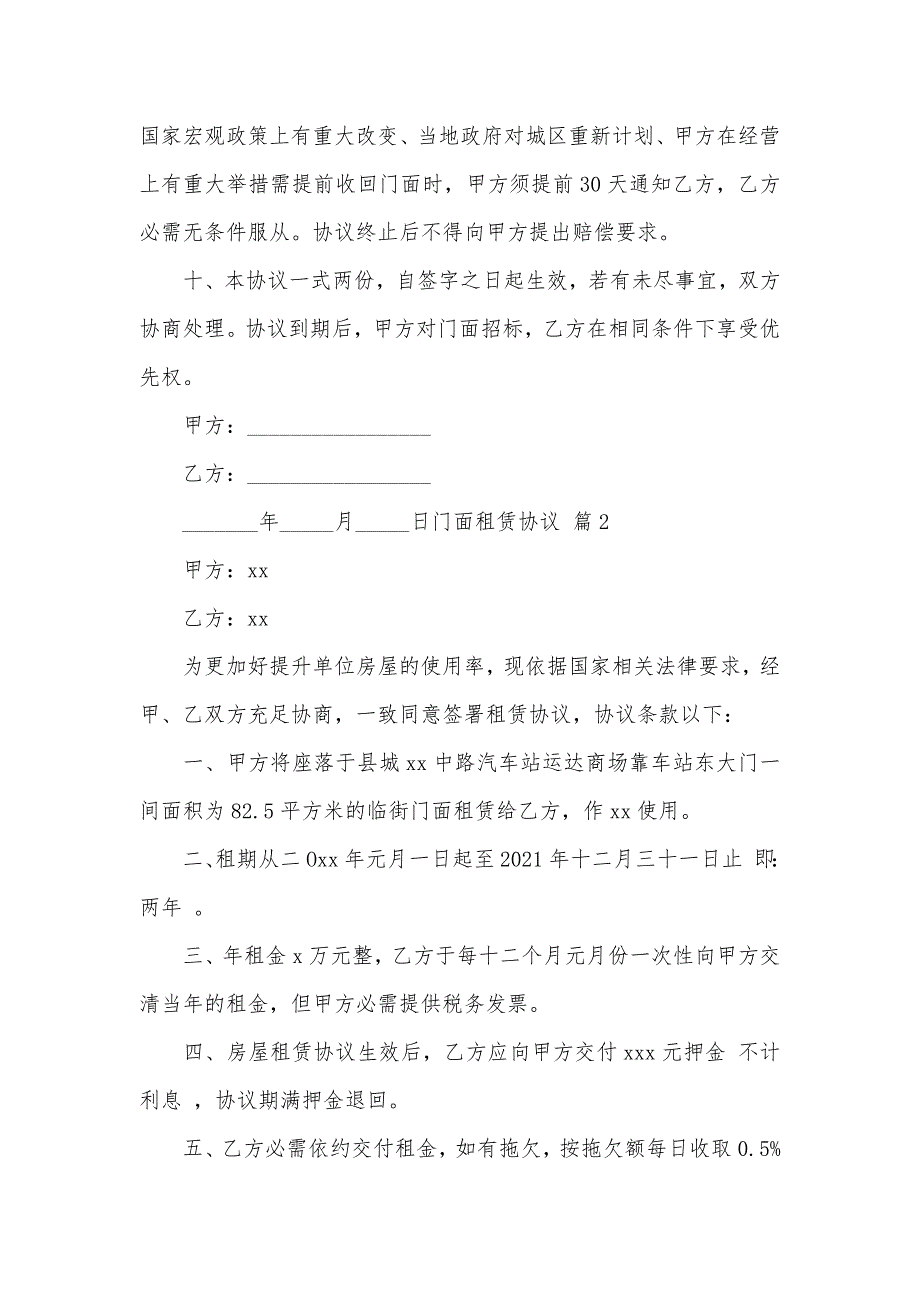 国家宏观政策上有重大改变、当地政府对城区重新计划、甲方在经营
上有重大举措需提前收回门面时，甲方须提前 30 天通知乙方，乙方
必需无条件服从。协议终止后不得向甲方提出赔偿要求。
十、本协议一式两份，自签字之日起生效，若有未尽事宜，双方
协商处理。协议到期后，甲方对门面招标，乙方在相同条件下享受优
先权。
甲方：_________________
乙方：_________________
_______年_____月_____日门面租赁协议 篇 2
甲方：xx
乙方：xx
为更加好提升单位房屋的使用率，现依据国家相关法律要求，经
甲、乙双方充足协商，一致同意签署租赁协议，协议条款以下：
一、甲方将座落于县城 xx 中路汽车站运达商场靠车站东大门一
间面积为 82.5 平方米的临街门面租赁给乙方，作 xx 使用。
二、租期从二 Oxx 年元月一日起至 2021 年十二月三十一日止 即：
两年 。
三、年租金 x 万元整，乙方于每十二个月元月份一次性向甲方交
清当年的租金，但甲方必需提供税务发票。
四、房屋租赁协议生效后，乙方应向甲方交付 xxx 元押金 不计
利息 ，协议期满押金退回。
五、乙方必需依约交付租金，如有拖欠，按拖欠额每日收取 0.5%